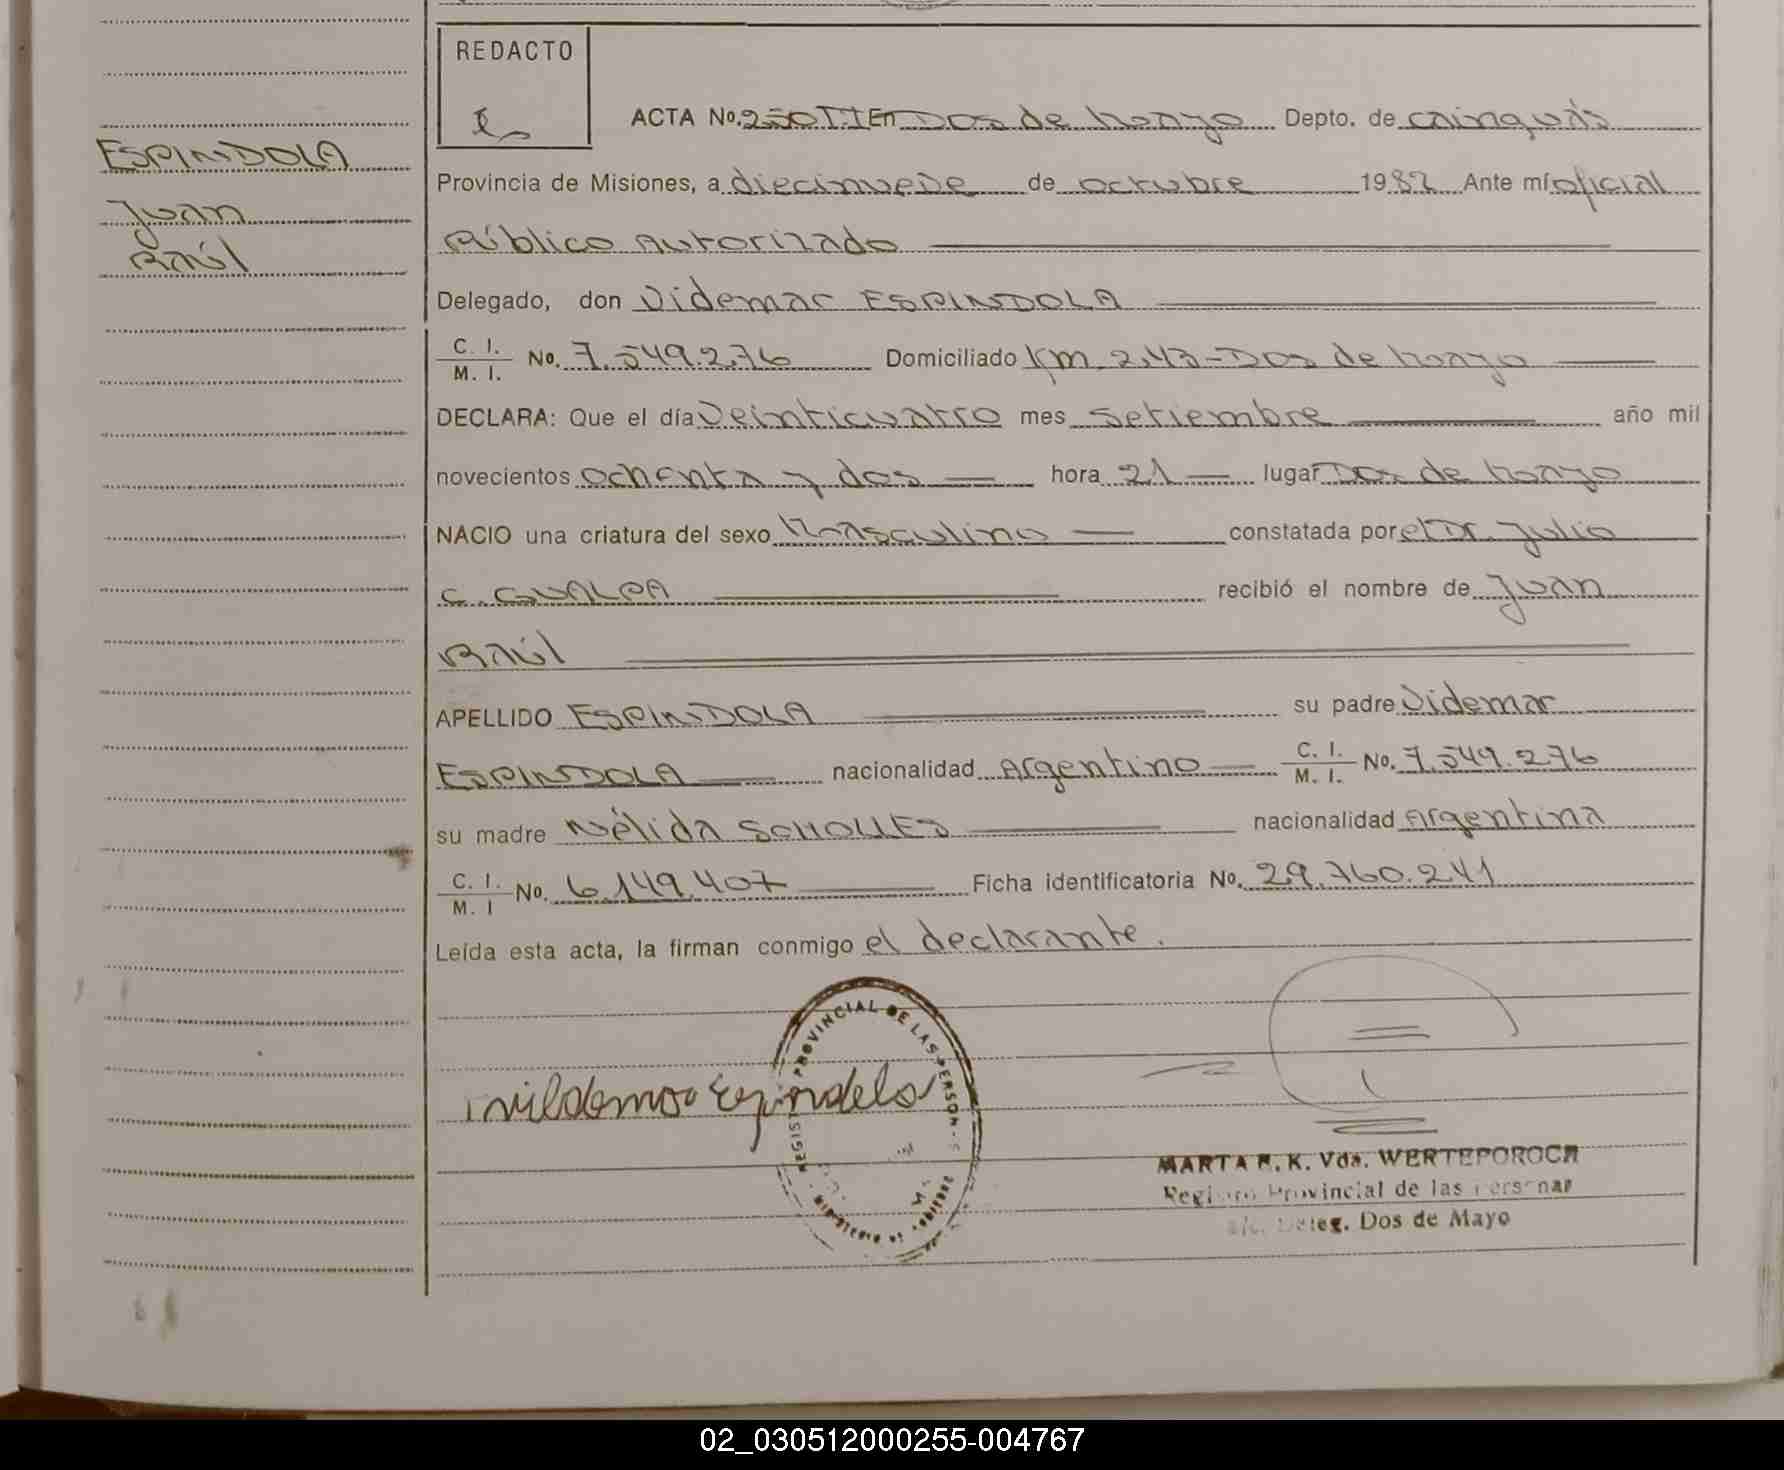 REDACTO
ACTA No. 250 TII En Dos de Mayo Depto. de Cainguás
ESPINDOLA
Juan
Raúl
Provincia de Misiones, a diecinueve de octubre 1982 Ante mí oficial
Público Autorizado
Delegado, don Videmar ESPINDOLA
C. I.
M. I. No. 7.549.276 Domiciliado Km. 243-Dos de Mayo
DECLARA: Que el día Veinticuatro mes Setiembre año mil
novecientos ochenta y dos hora 21 lugar Dos de Mayo
NACIO una criatura del sexo Masculino constatada por el Dr. Julio
C. GUALPA recibió el nombre de Juan
Raúl
APELLIDO ESPINDOLA su padre Videmar
ESPINDOLA nacionalidad Argentino C. I.
M. I. No. 7.549.276
su madre Nélida SCHOLLES nacionalidad Argentina
C. I.
M. I No. 6.149.407 Ficha identificatoria No. 29.760.241
Leída esta acta, la firman conmigo el declarante.
REGIST PROVINCIAL DE LAS PERSON S
MARTA R. K. Vda. WERTEPOROCH
Registro Provincial de las Personas
Deleg. Dos de Mayo
02_030512000255-004767